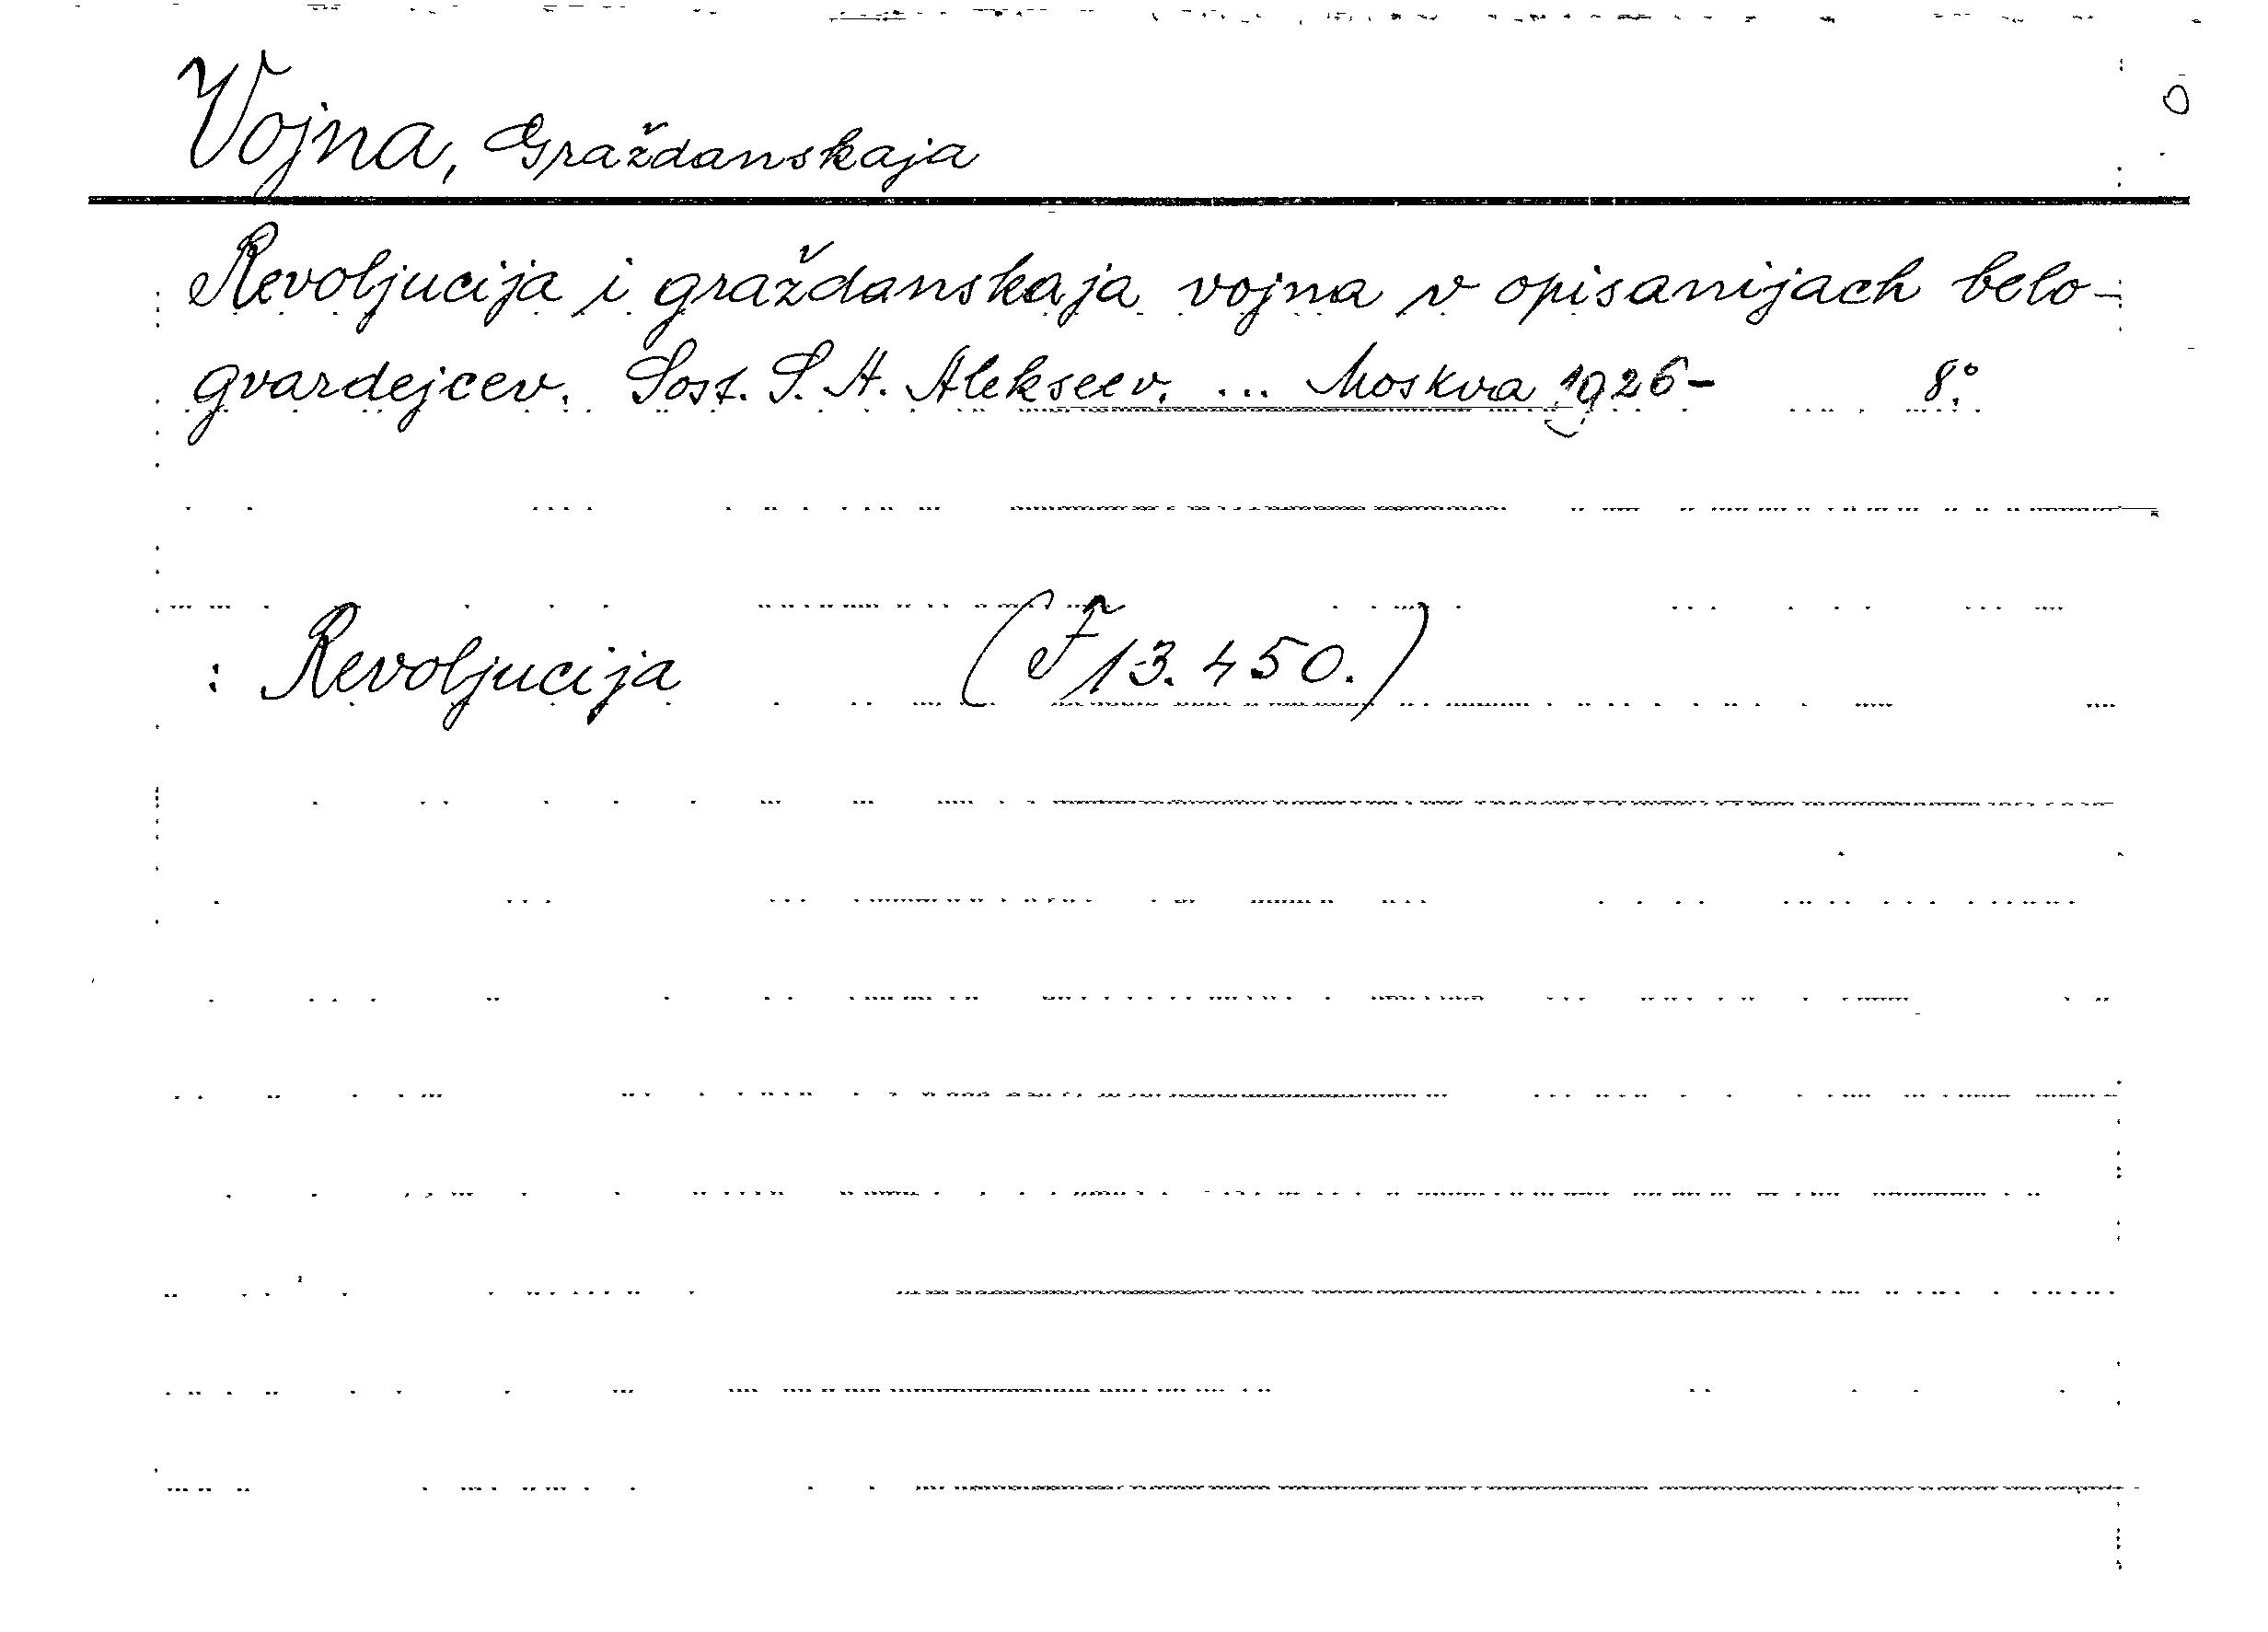 Vojna, Graždanskaja
Revoljucija i graždanskaja vojna v opisanijach belo-
gvardejcev. Sost. S. A. Alekseev. ... Moskva 1926- 8°.
: Revoljucija (F 13.450.)